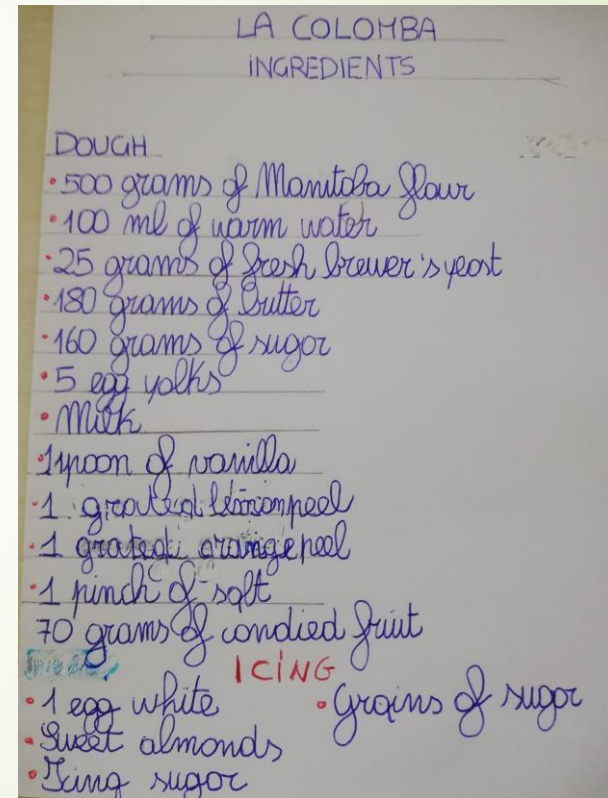 LA COLOMBA
INGREDIENTS
DOUGH
• 500 grams of Manitoba flour
• 100 ml of warm water
• 25 grams of fresh brewer's yeast
• 180 grams of butter
• 160 grams of sugar
• 5 egg yolks
• Milk
• 1 spoon of vanilla
• 1 grated lemonpeel
• 1 grated orangepeel
• 1 pinch of salt
70 grams of candied fruit
ICING
• 1 egg white • Grains of sugar
• Sweet almonds
• Icing sugar